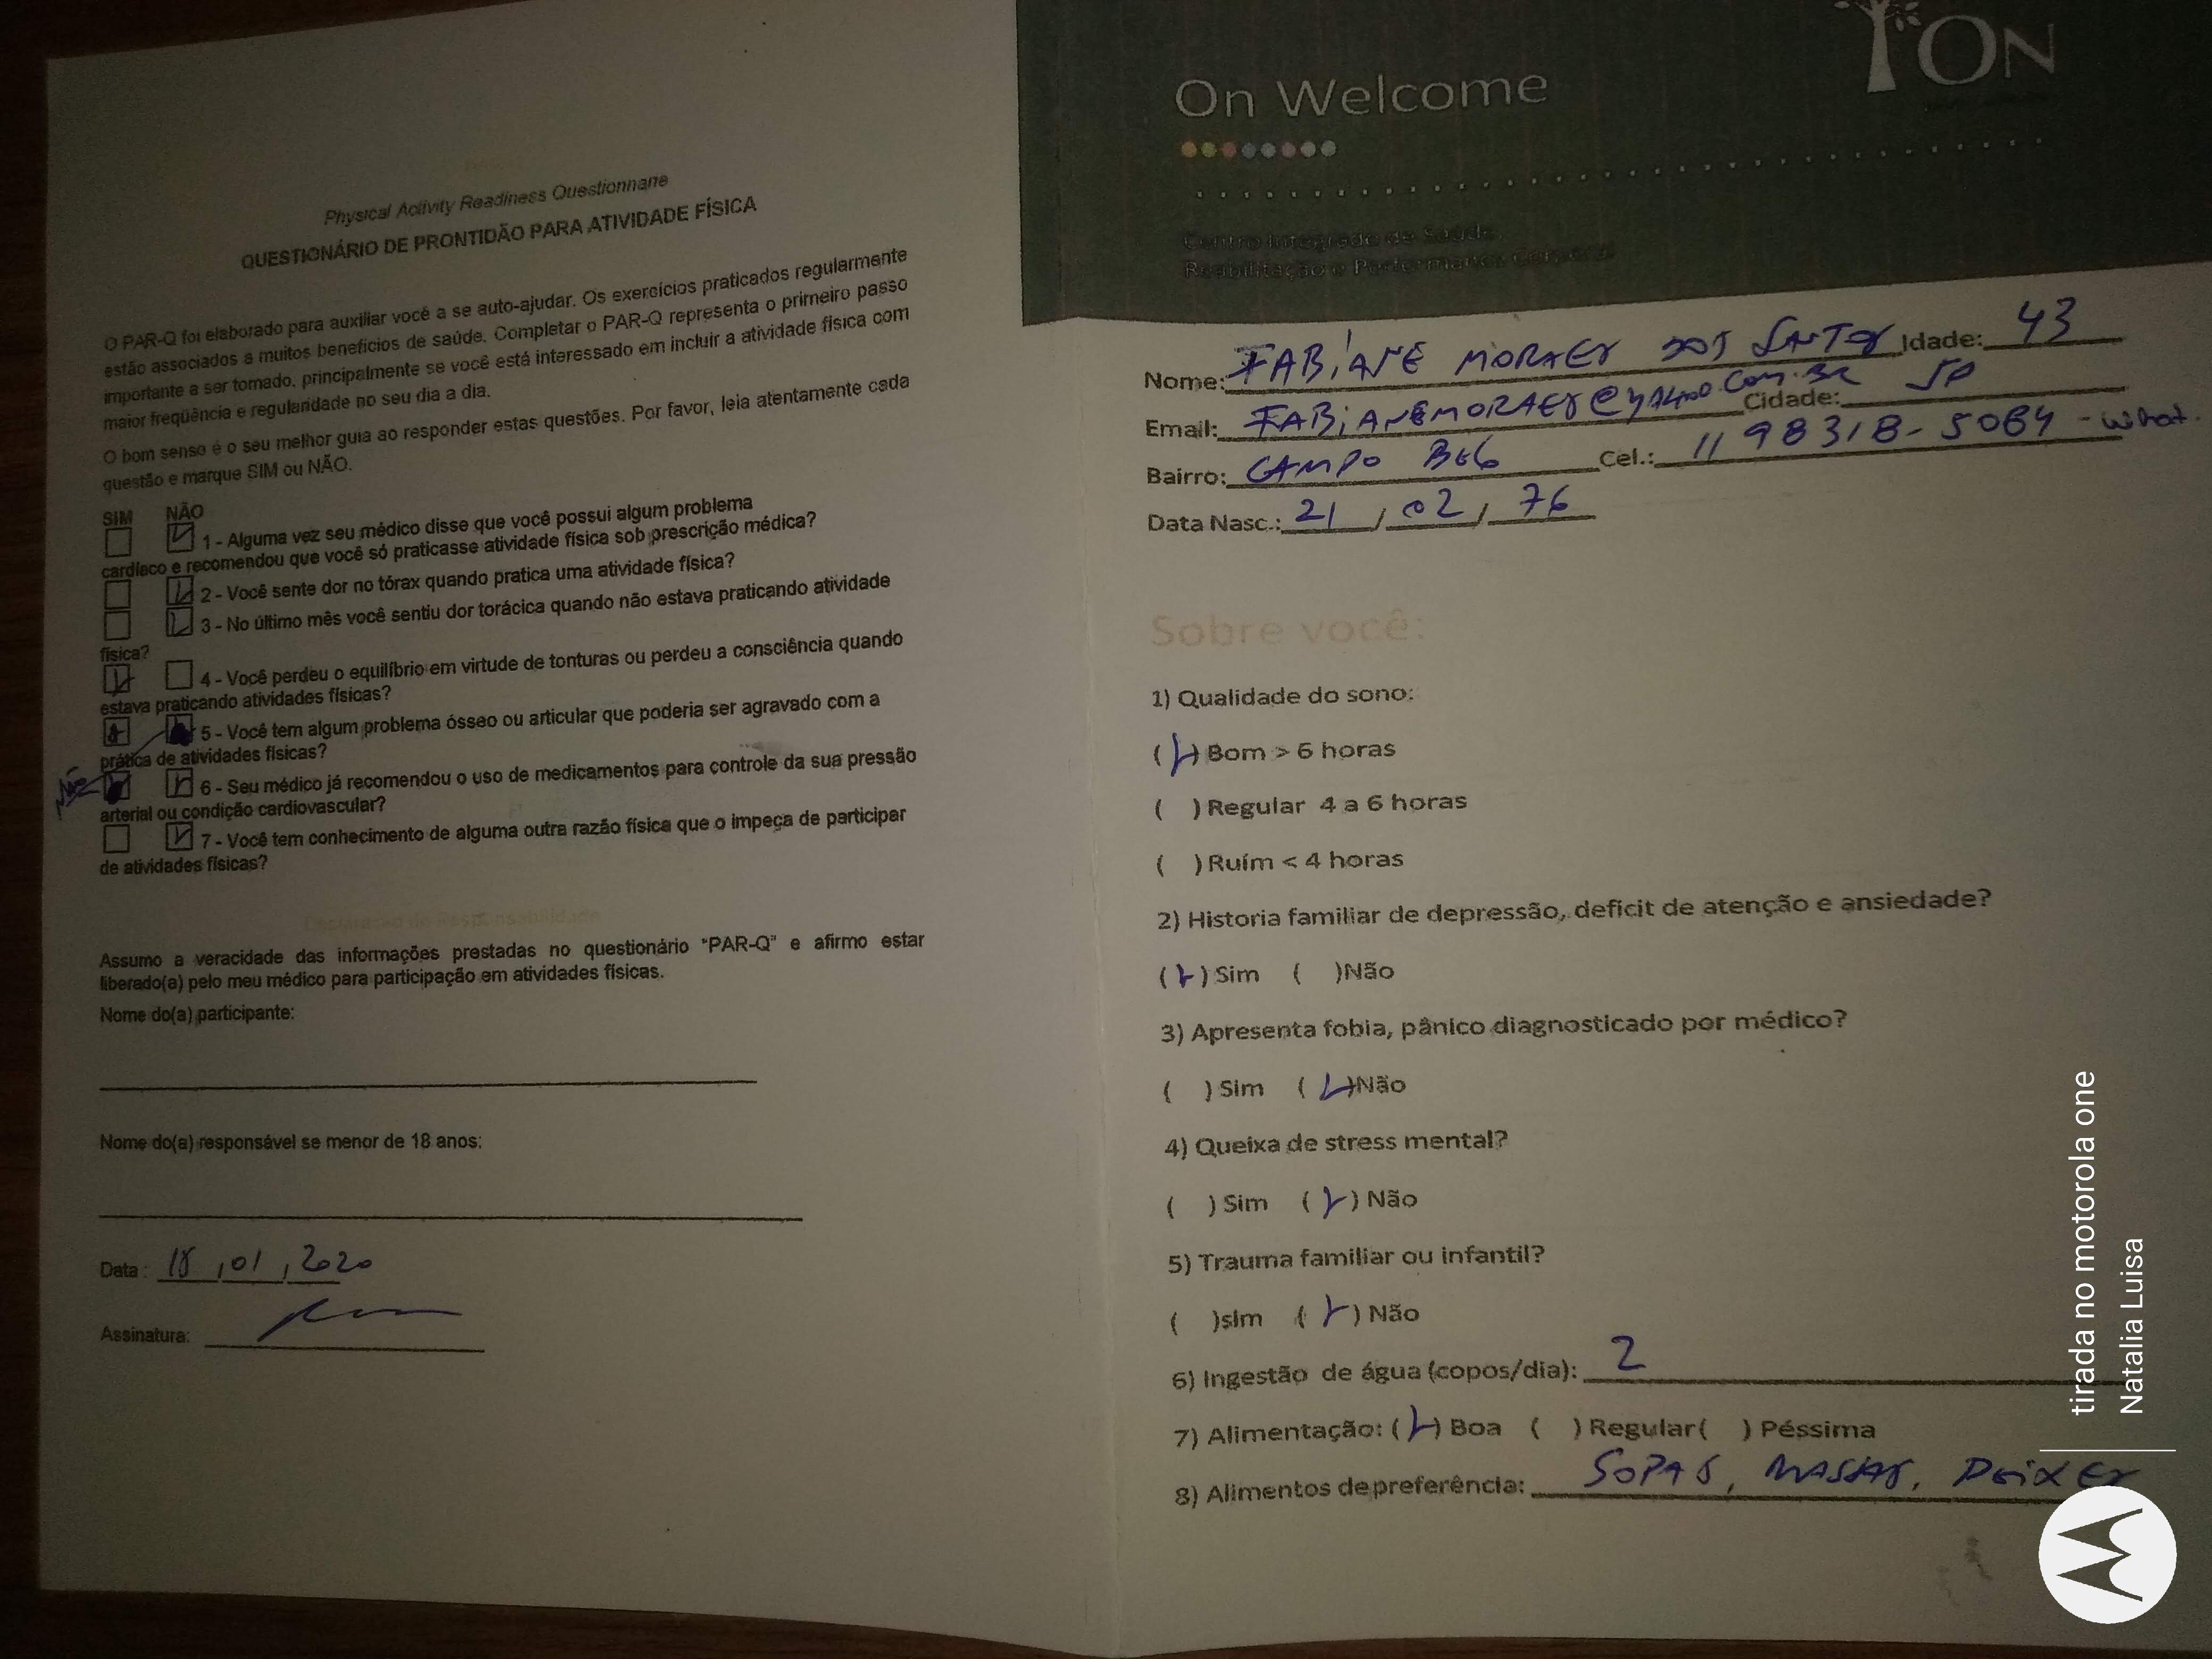 Physical Activity Readiness Questionnarie
QUESTIONÁRIO DE PRONTIDÃO PARA ATIVIDADE FÍSICA
O PAR-Q foi elaborado para auxiliar você a se auto-ajudar. Os exercícios praticados regularmente
estão associados a muitos benefícios de saúde. Completar o PAR-Q representa o primeiro passo
importante a ser tomado, principalmente se você está interessado em incluir a atividade física com
maior freqüência e regularidade no seu dia a dia.
O bom senso é o seu melhor guia ao responder estas questões. Por favor, leia atentamente cada
questão e marque SIM ou NÃO.
SIM NÃO
1 - Alguma vez seu médico disse que você possui algum problema
cardíaco e recomendou que você só praticasse atividade física sob prescrição médica?
2 - Você sente dor no tórax quando pratica uma atividade física?
3 - No último mês você sentiu dor torácica quando não estava praticando atividade
física?
4 - Você perdeu o equilíbrio em virtude de tonturas ou perdeu a consciência quando
estava praticando atividades físicas?
5 - Você tem algum problema ósseo ou articular que poderia ser agravado com a
prática de atividades físicas?
6 - Seu médico já recomendou o uso de medicamentos para controle da sua pressão
arterial ou condição cardiovascular?
7 - Você tem conhecimento de alguma outra razão física que o impeça de participar
de atividades físicas?
Assumo a veracidade das informações prestadas no questionário "PAR-Q" e afirmo estar
liberado(a) pelo meu médico para participação em atividades físicas.
Nome do(a) participante:
Nome do(a) responsável se menor de 18 anos:
Data : 18 , 01 , 2020
Assinatura:
On Welcome
ON
Nome: FABIANE MORAES DOS SANTOS Idade: 43
Email: FABIANEMORAES@YAHOO.COM.BR Cidade: SP
Bairro: CAMPO BELO Cel.: 11 98318-5084 - what.
Data Nasc.: 21 / 02 / 76
Sobre você:
1) Qualidade do sono:
( ) Bom > 6 horas
( ) Regular 4 a 6 horas
( ) Ruím < 4 horas
2) Historia familiar de depressão, deficit de atenção e ansiedade?
( ) Sim ( )Não
3) Apresenta fobia, pânico diagnosticado por médico?
( ) Sim ( )Não
4) Queixa de stress mental?
( ) Sim ( ) Não
5) Trauma familiar ou infantil?
( )sim ( ) Não
6) Ingestão de água (copos/dia): 2
7) Alimentação: ( ) Boa ( ) Regular( ) Péssima
8) Alimentos de preferência: SOPAS, MASSAS, PEIXES
tirada no motorola one
Natalia Luisa